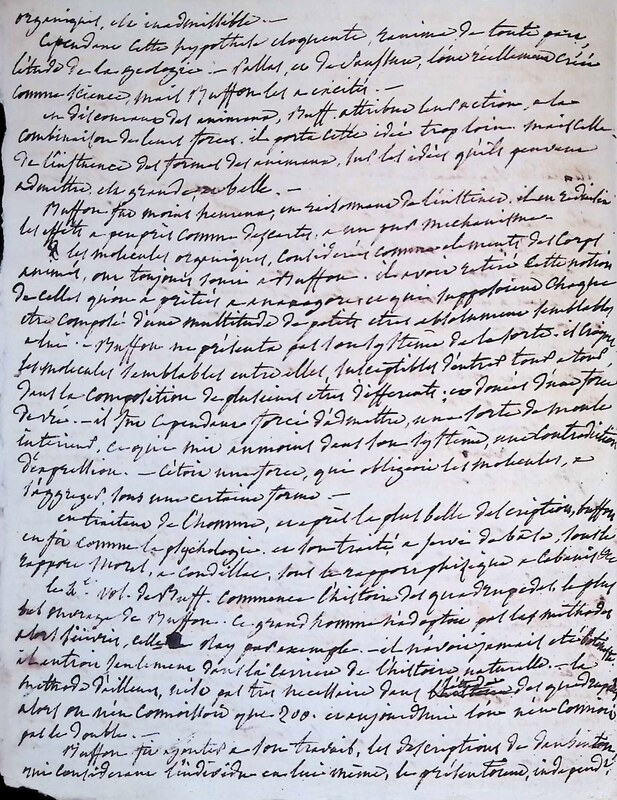 organiques, est inadmissible. —
Cependant cette hypothèse eloquente, ranima de toute part
l'étude de la geologie. — Pallas, et de Saussure, l'ont réellement créée
comme science, mais Buffon les a excités. —
en discourant des animaux, Buff. attribue leurs actions, a la
combinaison de leurs forces. il porte cette idée trop loin. mais celle
de l'influence des formes des animaux, sur les idées qu'ils peuvent
admettre, est grande et belle. —
Buffon fut moins heureux, en raisonnant de l'instinct. il en réduisit
les effets a peu près comme descartes, a un pur mechanisme.
les molecules organiques, considérées comme elements des corps
animés, ont toujours souri a Buffon. il avoit retiré cette notion
de celles qu'on a prêtées a anaxagore, ce qui supposoient chaque
etre composé d'une multitude de petits etres absolument semblables
a lui. — Buffon ne présenta pas son systême de la sorte. il croyoit
les molecules semblables entre elles, susceptibles d'entrer tour a tour
dans la composition de plusieurs êtres differents, et douées d'une force
de vie. — il fut cependant forcé d'admettre, une sorte de moule
interieur, ce qui mit au moins dans son systême, une contradiction
d'expression. — c'étoit une force, qui obligeoit les molecules, a
s'aggreger, sous une certaine forme —
en traitant de l'homme, et après la plus belle description, buffon
en fit comme la psychologie. et son traité a servi de base, sous le
rapport moral, a Condillac, sous le rapport phisique a Cabanis &c
le 4e. vol. de Buff. commence l'histoire des quadrupedes, le plus
bel ouvrage de Buffon. Ce grand homme n'adopta pas les methodes
alors suivies, celle de ray par exemple. — il n'avoit jamais eté botaniste
il entroit seulement dans la carriere de l'histoire naturelle. — la
methode d'ailleurs, n'est pas très necessaire dans des quadrupedes
alors on n'en connoissoit que 200. et aujourdhui l'on n'en connoit
pas le double. —
Buffon fit ajouter a son travail, les descriptions de daubenton
qui considerant l'individu en lui même, le présentoient, independt.